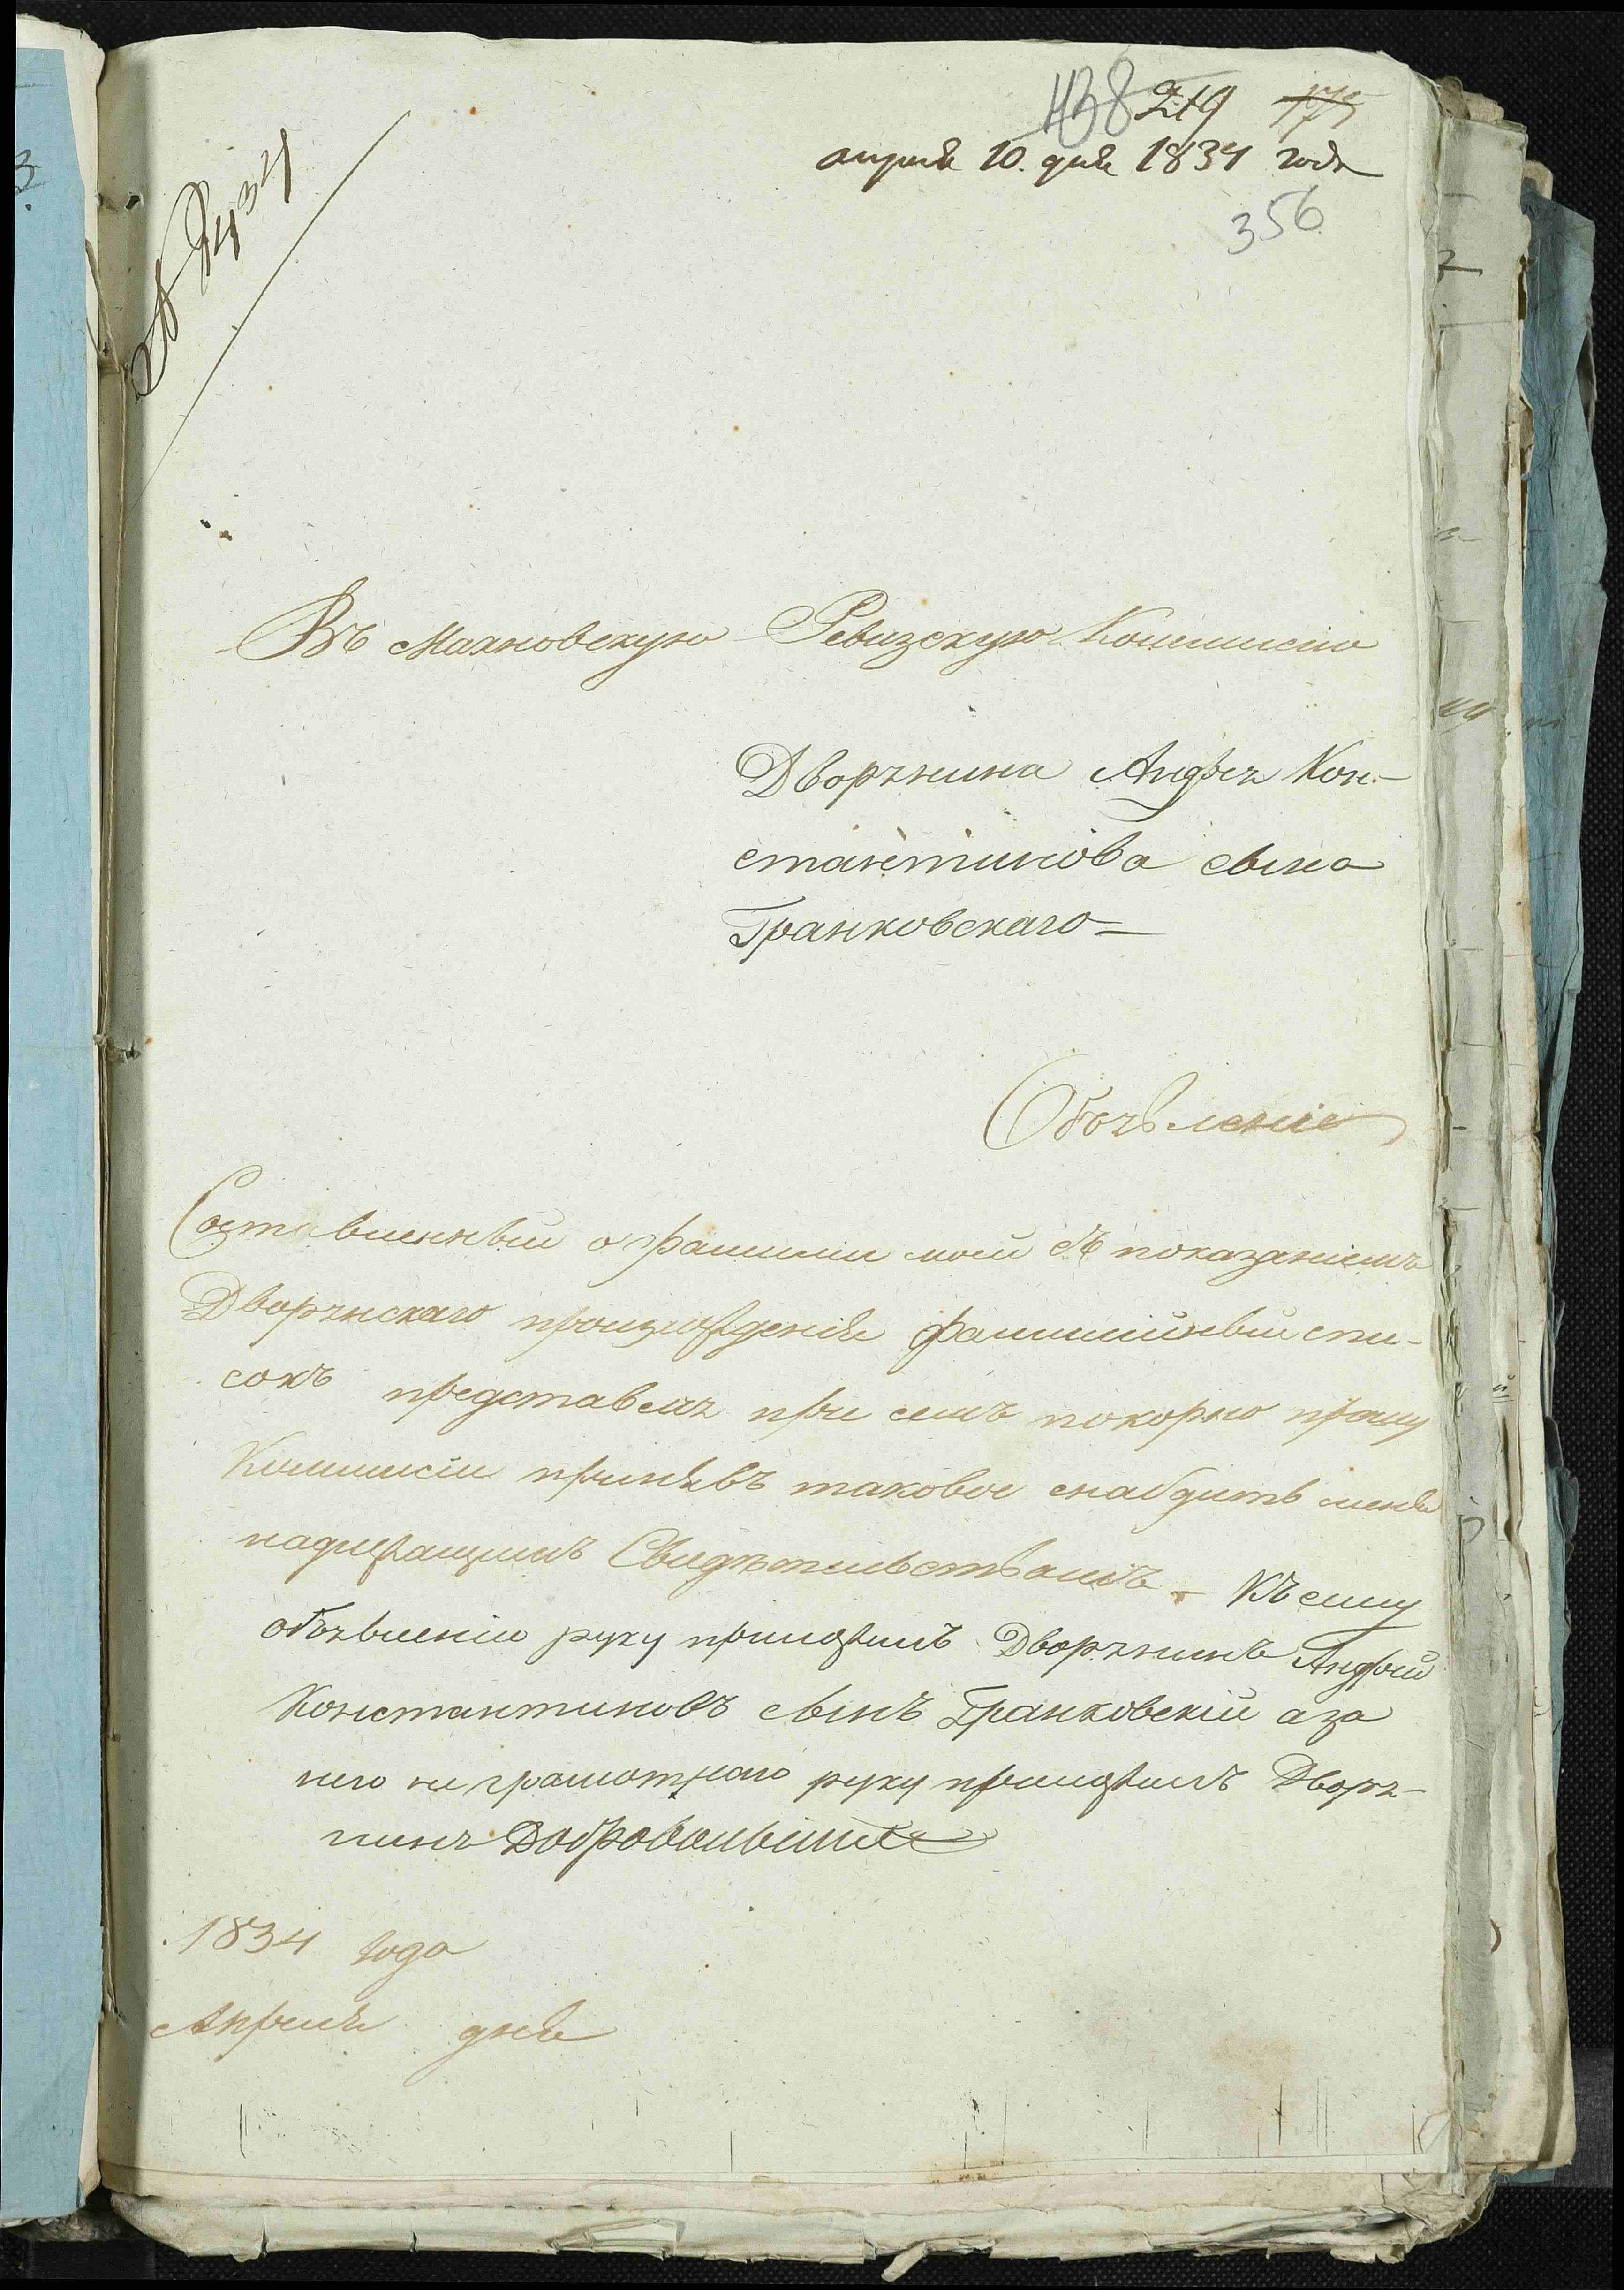 438 219 175
апреля 10. дня 1834 года
356
№ 1434
Въ Махновскую Ревизскую Коммисію
Дворянина Андрея Кон-
стантинова сына
Гранковскаго
Объявленіе
Составленный о фамиліи моей съ показаніемъ
Дворянскаго произхожденія фамилійный спи-
сокъ представляя при семъ покорно прошу
Коммисіи принявъ таковое снабдить меня
надлежащимъ Свидѣтельствомъ – Къ сему
объявленію руку приложилъ Дворянинъ Андрей
Константиновъ сынъ Гранковскій а за
него не грамотнаго руку приложилъ Дворя-
нинъ
1834 года
Апреля дня